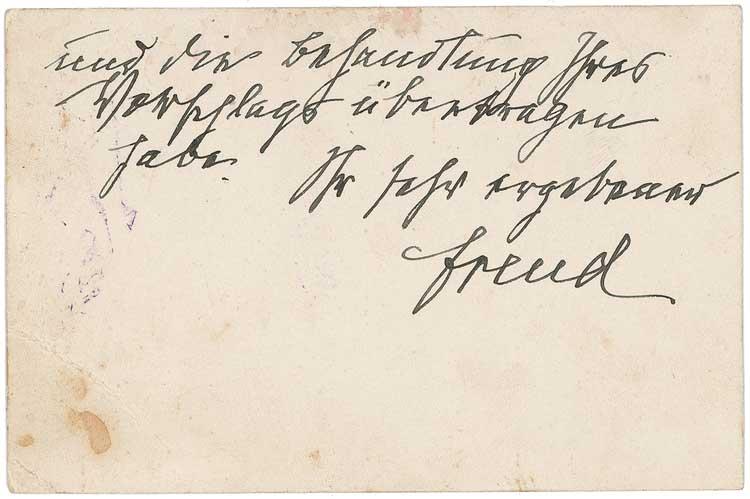 und die Behandlung Ihres
Vorschlags übertragen
habe. Ihr sehr ergebener
Freud